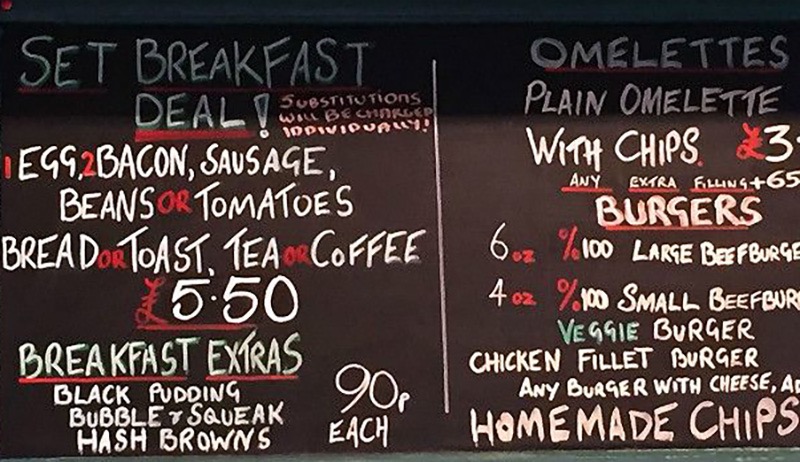 SET BREAKFAST
DEAL!
SUBSTITUTIONS
WILL BE CHARGED
INDIVIDUALLY!
1 EGG, 2 BACON, SAUSAGE,
BEANS OR TOMATOES
BREAD OR TOAST. TEA OR COFFEE
£5.50
BREAKFAST EXTRAS
BLACK PUDDING
BUBBLE & SQUEAK
HASH BROWNS
90p
EACH
OMELETTES
PLAIN OMELETTE
WITH CHIPS. £3.
ANY EXTRA FILLING +65
BURGERS
6 oz %100 LARGE BEEFBURGE
4 oz %100 SMALL BEEFBUR
VEGGIE BURGER
CHICKEN FILLET BURGER
ANY BURGER WITH CHEESE,
HOMEMADE CHIPS